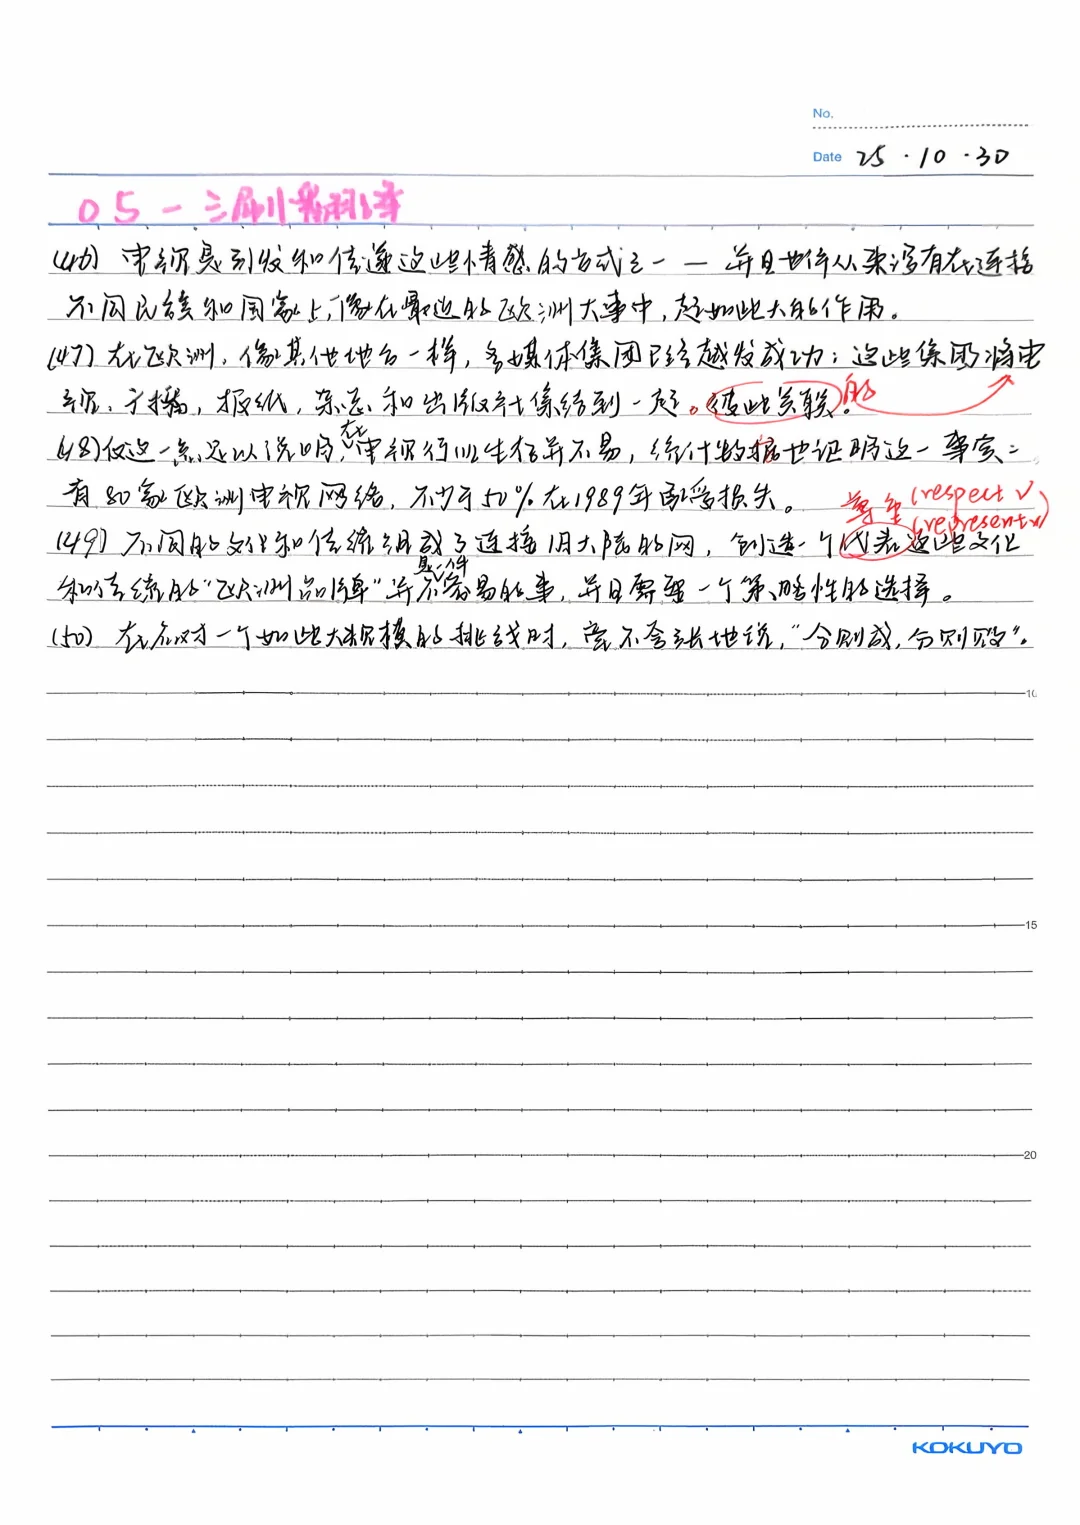 No.
Date 25·10·30
05-三刷翻译
(46) 电视是引发和传递这些情感的方式之一 — 并且也许从来没有在连接
不同民族和国家上,像在最近的欧洲大事中,起如此大的作用。
(47) 在欧洲,像其他地方一样,多媒体集团已经越发成功:这些集团将电
视,广播,报纸,杂志和出版社集结到一起。彼此关联的。
(48)仅这一点足以说明,在电视行业生存并不易,统计数据也证明这一事实:
有80家欧洲电视网络,不少于50%在1989年遭受损失。
尊重(respect √)
(represent x)
(49) 不同的文化和传统组成了连接旧大陆的网,创造一个代表这些文化
是一件
和传统的"欧洲品牌"并不容易的事,并且需要一个策略性的选择。
(50) 在应对一个如此大规模的挑战时,毫不夸张地说,"合则成,分则败"。
10
15
20
KOKUYO